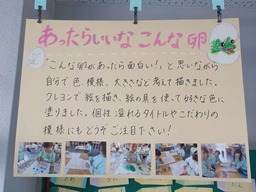 あったらいいな こんな 卵
"こんな卵があったら面白い!"と思いながら
自分で色、模様、大きさなど考えて描きました。
クレヨンで絵を描き、絵の具を使って好きな色に
塗りました。個性溢れるタイトルやこだわりの
模様にもどうぞご注目下さい!